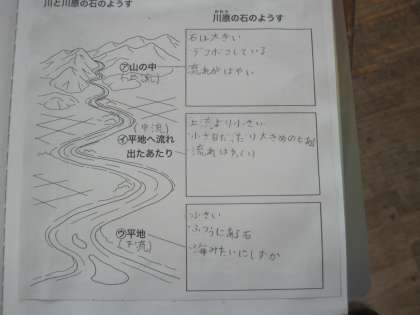 川と川原の石のようす
川原の石のようす
かわら
㋐山の中
(上流)
石は大きい
デコボコしている
流れがはやい
(中流)
㋑平地へ流れ
出たあたり
上流より小さい
小さな石だったり大きめの
流れは
㋒平地
(下流)
小さい
ふつうにある石
海みたいにしずか